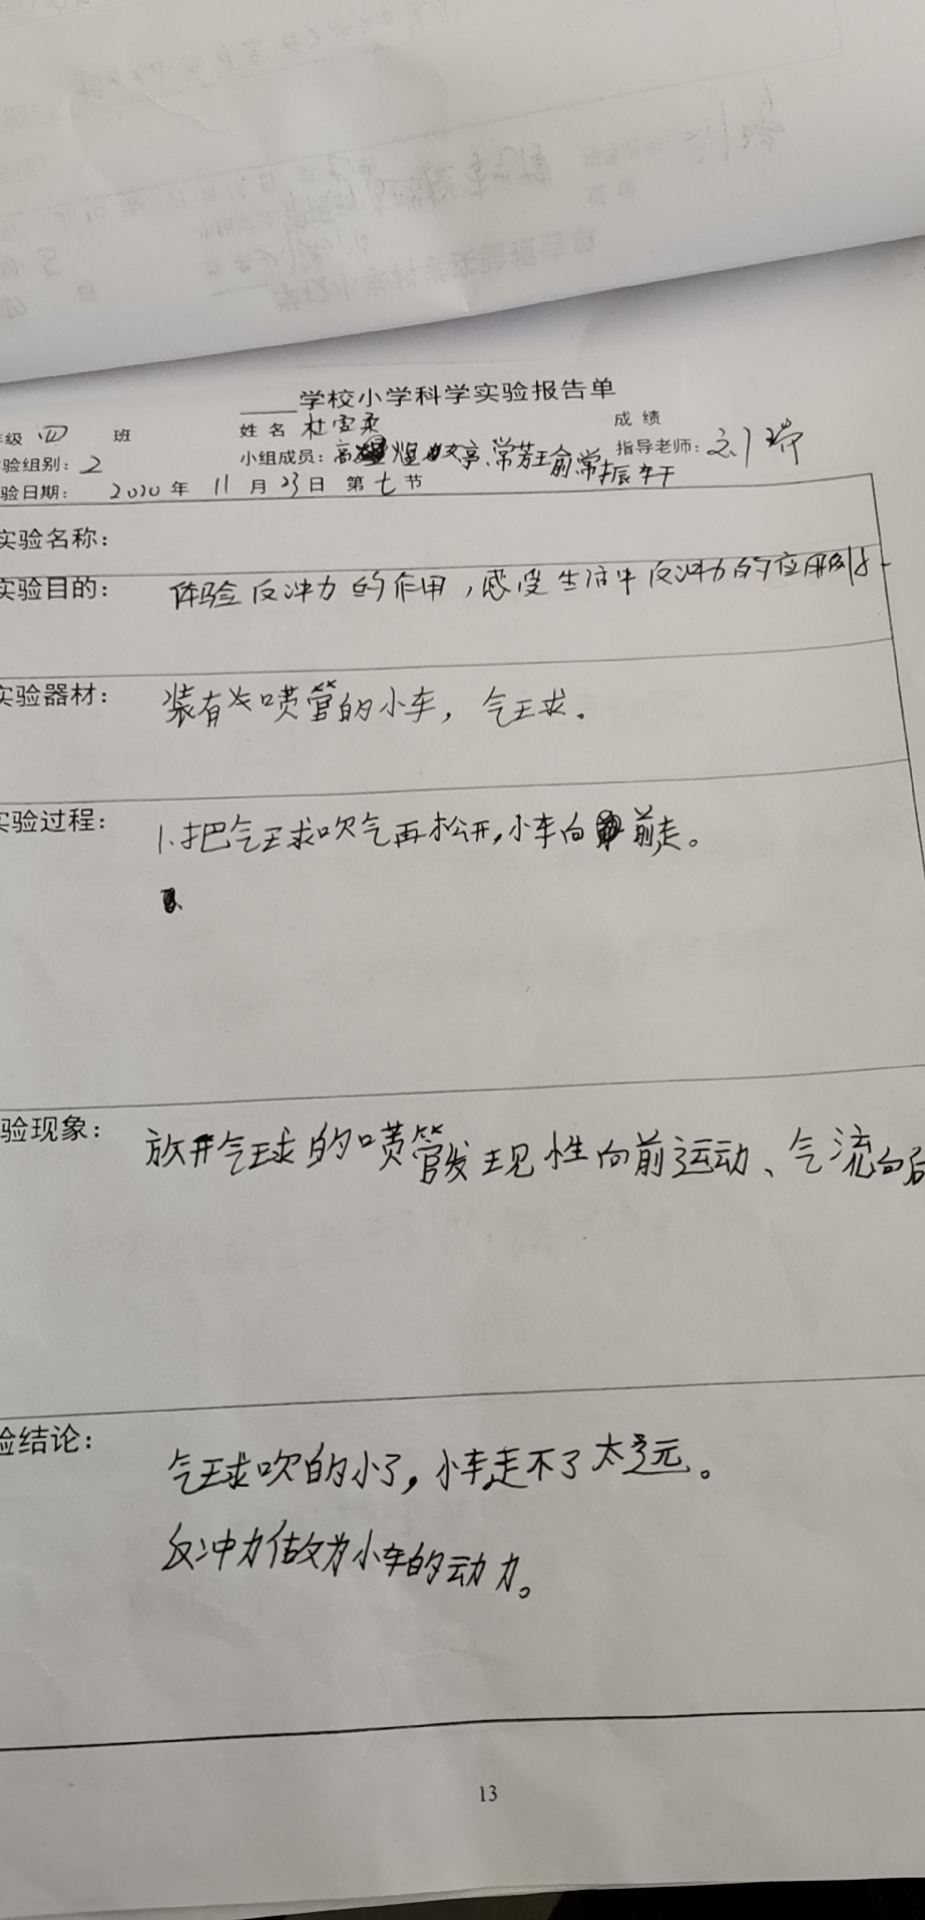 学校小学科学实验报告单
级 四 班 姓 名 杜雪柔 成 绩
验组别：2 小组成员：高 煜 文亭、常芳玉、俞常振轩 指导老师：刘瑞
验日期： 2020 年 11 月 23 日 第 七 节
实验名称：
实验目的： 体验反冲力的作用，感受生活中反冲力的应用
实验器材： 装有 喷管的小车，气球。
实验过程： 1.把气球吹气再松开，小车向 前走。
验现象： 放开气球的喷管发现 性向前运动、气流向后
验结论： 气球吹的小了，小车走不了太远。
反冲力做为小车的动力。
13